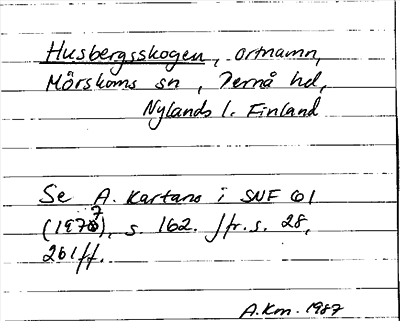 Husbergsskogen, ortnamn,
Mörskoms sn, Pernå hd,
Nylands l. Finland
Se A. Kartano i SNF 61
(1977), s. 162. Jfr. s. 28,
261ff.
A.Km. 1987